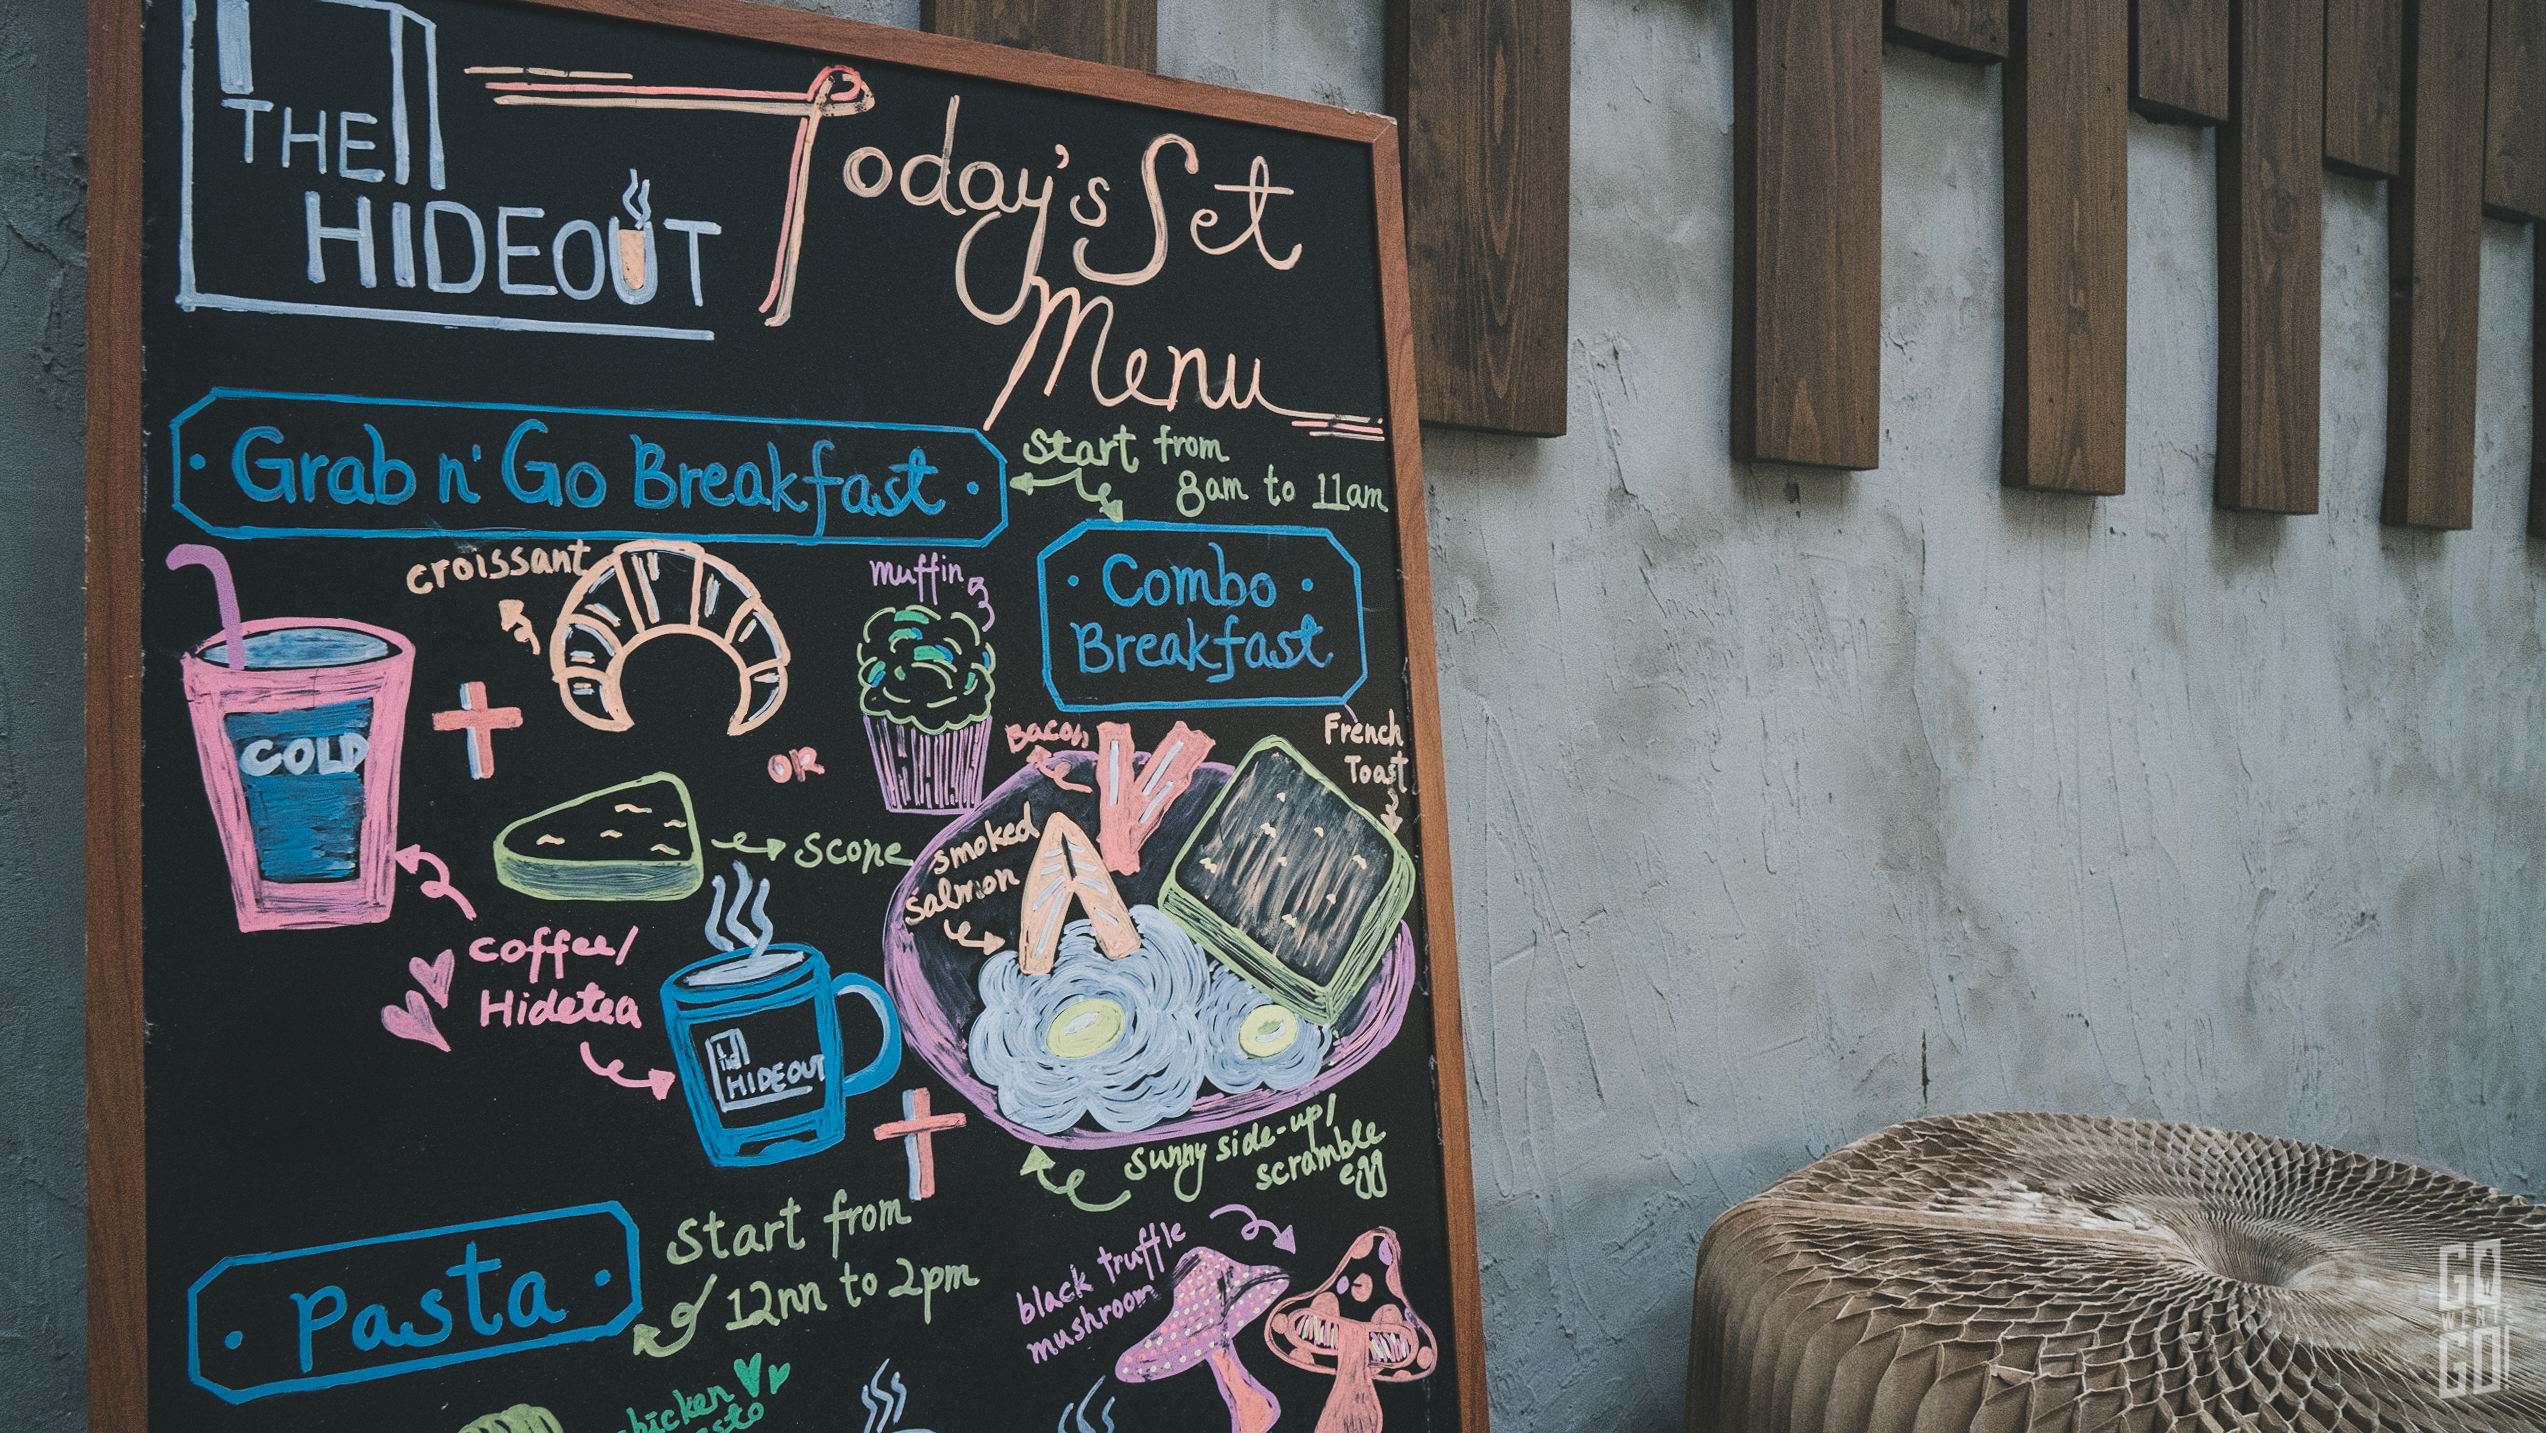 THE
HIDEOUT
Today's Set
Menu
Grab n' Go Breakfast
start from
8am to 11am
croissant
muffin
Combo
Breakfast
COLD
OR
Bacon
French
Toast
scone
smoked
salmon
coffee/
Hidetea
THE
HIDEOUT
sunny side-up/
scramble
egg
Pasta
Start from
12nn to 2pm
black truffle
mushroom
chicken
GO
WENT
GO!